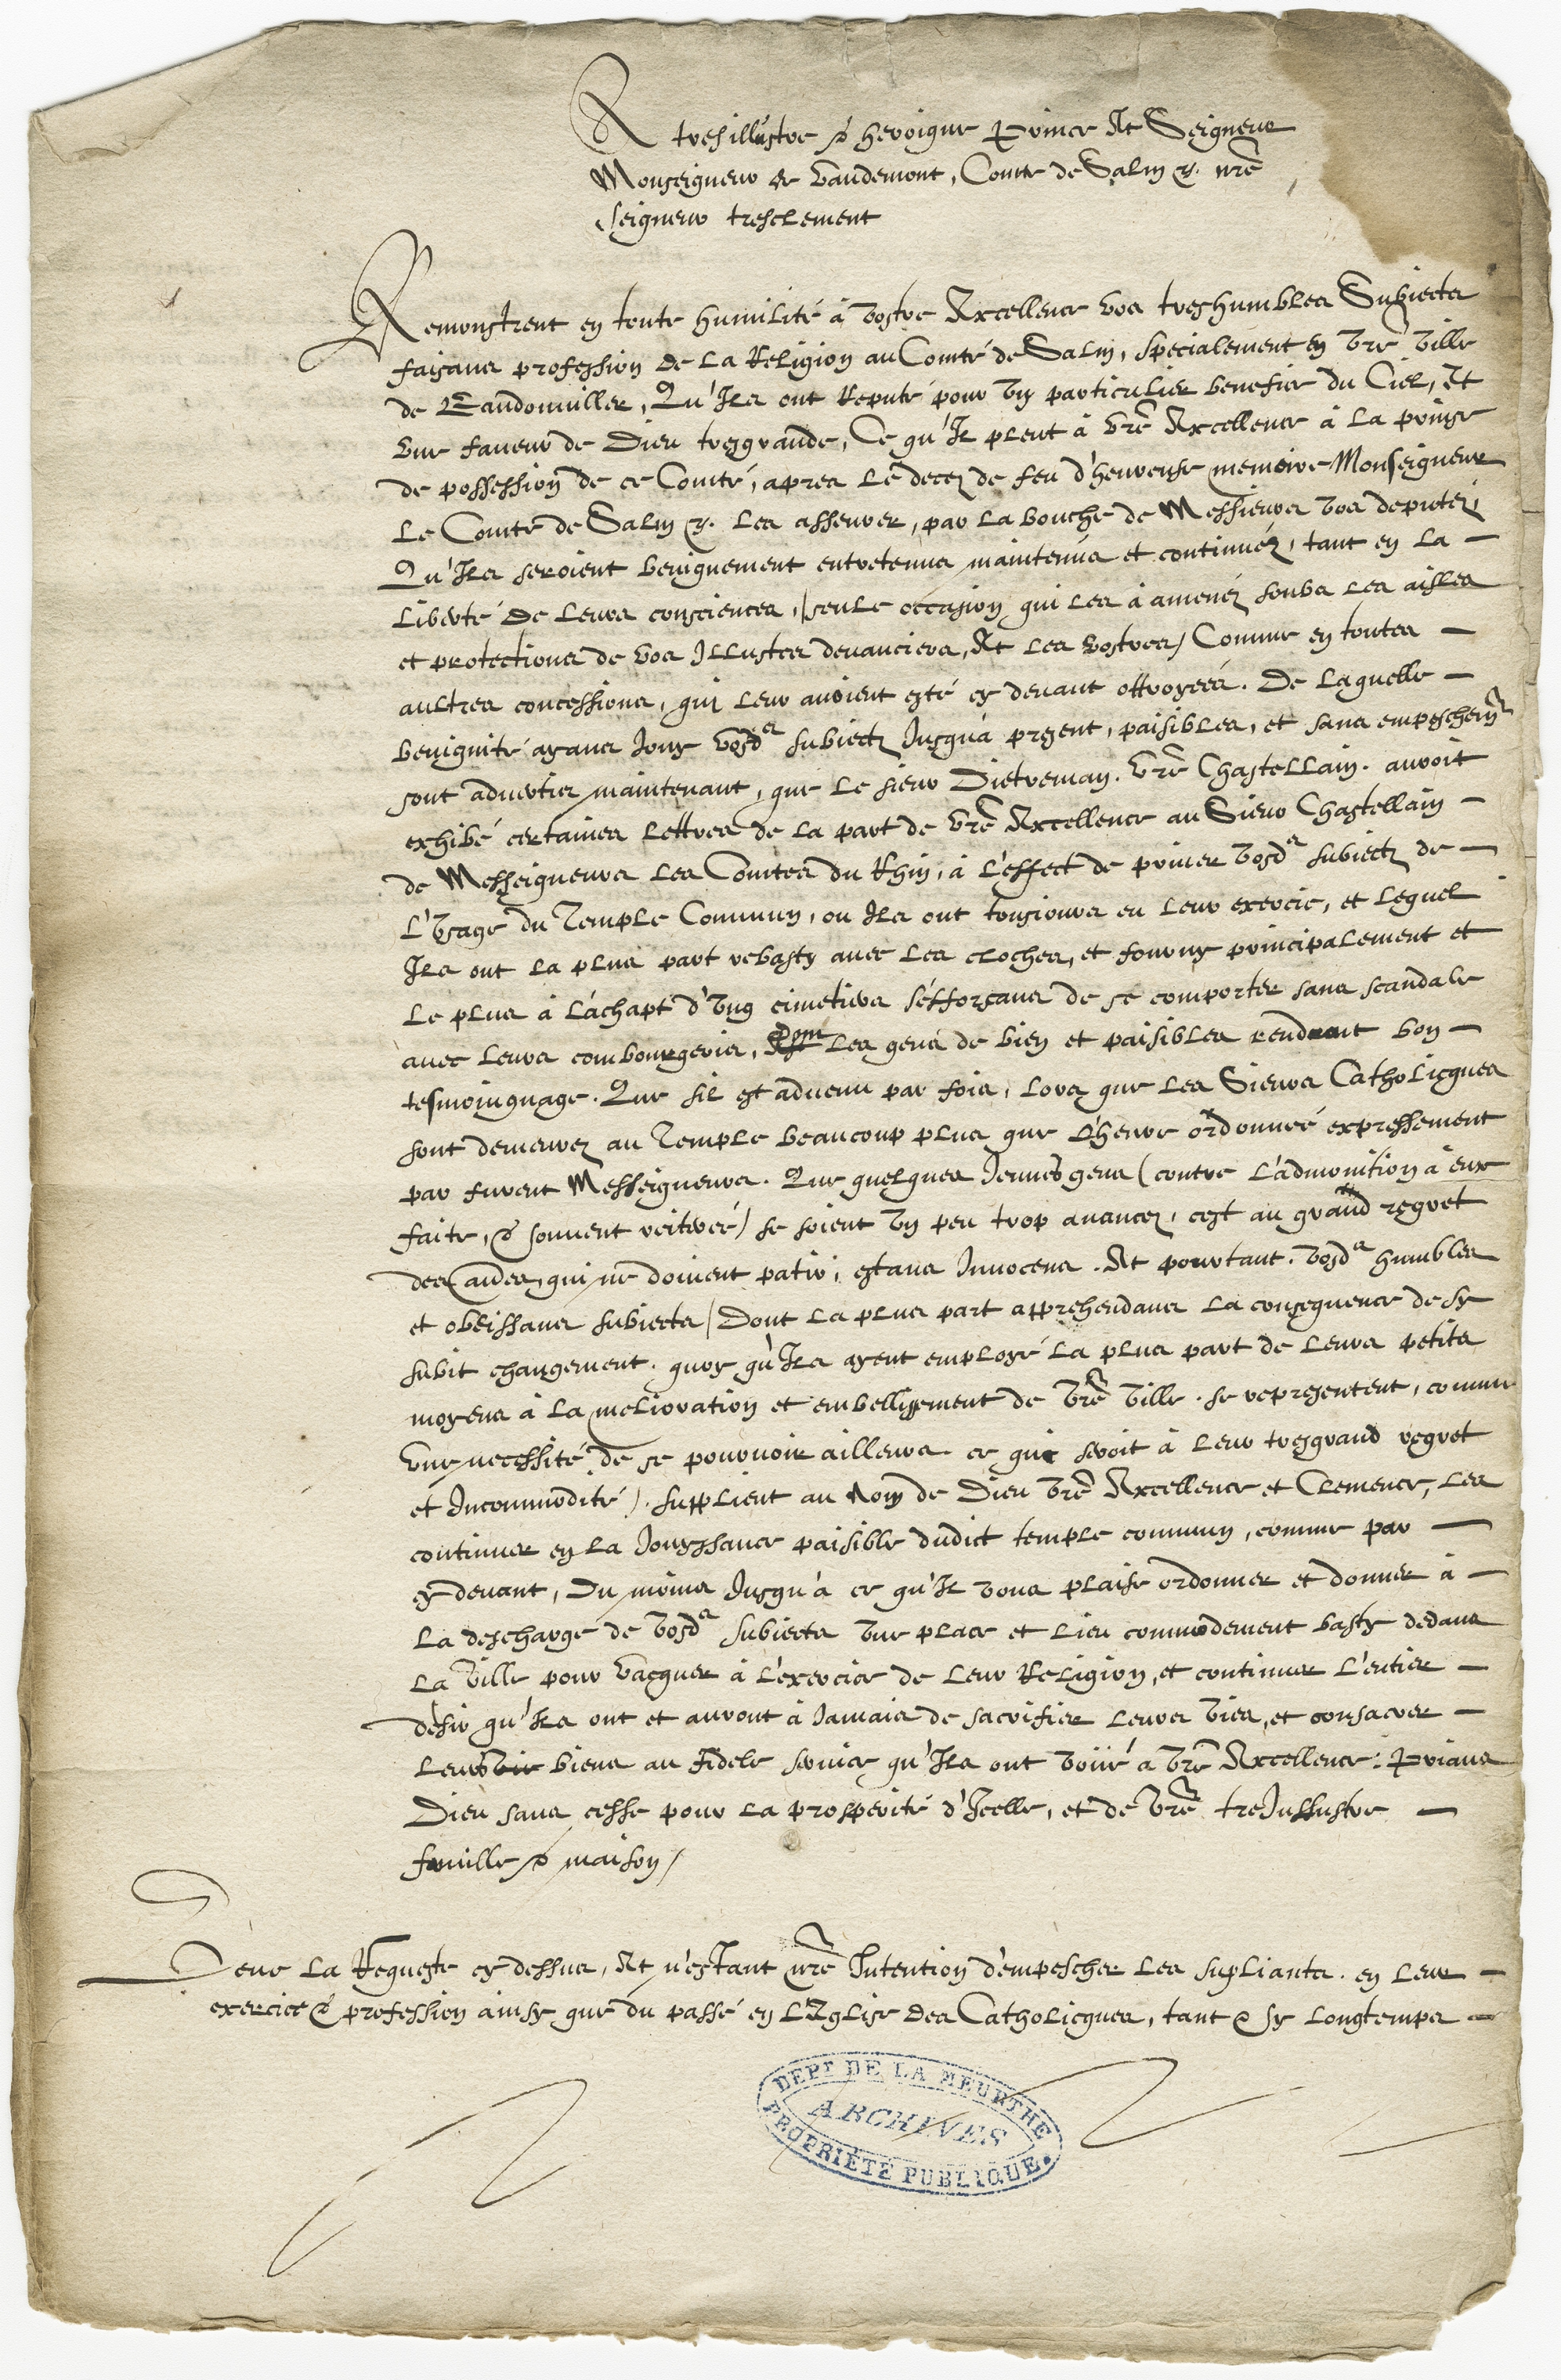 A tresillustre & heroique Prince Et Seigneur
Monseigneur de Vaudemont, Comte de Salm &. nr̃e
seigneur tresclement
Remonstrent en toute humilité à Vostre Excellence vos treshumbles Subiects
faisans profession de la Religion au Comté de Salm, specialement en vr̃e ville
de Bandonuiller, Qu'Ils ont Reputé pour vn particulier benefice du Ciel, Et
vne faueur de Dieu tresgrande, Ce qu'Il pleut à vr̃e Excellence à la prinse
de possession de ce Comté, apres le decez de feu d'heureuse memoire Monseigneur
le Comte de Salm &. les asseurer, par la bouche de Messieurs vos deputez,
Qu'Ils seroient benignement entretenus maintenus et continuéz, tant en la
liberté de leurs consciences, (seule occasion qui les à amenéz soubs les aisles
et protections de vos Illustres deuanciers, Et les vostres) Comme en toutes
aultres concessions, qui leur auoient esté cy deuant ottroyeés. De laquelle
benignité ayans Iouy vosd.s subiectz Iusqu'à pr̃sent, paisibles, et sans empeschem.t
sont aduertiz maintenant, que le sieur Dietreman. vr̃e Chastellain. auroit
exhibé certaines lettres de la part de vr̃e Excellence au Sieur Chastellain
de Messeigneurs les Comtes du Rhin, à l'effect de priuer vosd.s subiectz de
l'vsage du Temple Commun, ou Ils ont tousiours eu leur exercice, et lequel
Ils ont la plus part rebasty auec les cloches, et fourny principalement et
le plus à l'achapt d'vng cimetiere s'éfforçans de se comporter sans scandale
auec leurs combourgeois, Dont les gens de bien et paisibles rendront bon
tesmoingnage. Que sil est aduenu par fois, lors que les Sieurs Catholicques
sont demeurez au Temple beaucoup plus que l'heure ordonneé expressement
par furent Messeigneurs. Que quelques Ieunes gens (contre l'admonition à eux
faite, & souuent reitereé) se soient vn peu trop auancez, cest au grand regret
des aultres, qui ne doiuent patir, estans Innocens. Et pourtant. vosd.s humbles
et obeissans subiects (Dont la plus part apprehendans la consequence de sy
subit changement. quoy qu'Ils ayent employé la plus part de leurs petits
moyens à la melioration et embellissement de vr̃e ville. se representent, comme
vne necessité, de se pouruoir ailleurs. ce qui seroit à leur tresgrand regret
et Incommodité). supplient au Nom de Dieu vr̃e Excellence et Clemence, les
continuer en la Iouyssance paisible dudict temple commun, comme par
cy deuant, Du moins Iusqu'à ce qu'Il vous plaise ordonner et donner à
la descharge de vosd.s subiects vne place et lieu commodement basty dedans
la ville pour vacquer à l'exercice de leur Religion, et continuer l'entier
desir qu'Ils ont et auront à Iamais de sacrifier leurs vies, et consacrer
leurs biens au fidele seruice qu'Ils ont voüé a vr̃e Excellence: Prians
Dieu sans cesse pour la prosperité d'Icelle, et de vr̃e tresIllustre
famille & maison /
Veue la Requeste cy dessus, Et n'estant nr̃e Intention d'empescher les suplians. en leur
exercice & profession ainsy que du passé en l'Eglise des Catholicques, tant & sy longtemps
DEPT DE LA MEURTHE
ARCHIVES
PROPRIÉTÉ PUBLIQUE.